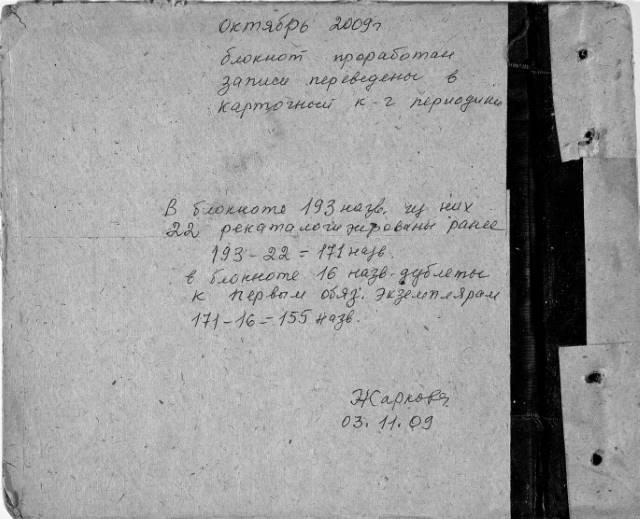 Октябрь 2009г
блокнот проработан
записи переведены в
карточный к-г периодики
В блокноте 193 назв. из них
22 рекаталогизированы ранее
193 - 22 = 171 назв.
в блокноте 16 назв. дублеты
к первым обяз. экземплярам
171 - 16 = 155 назв.
Жаркова
03.11.09